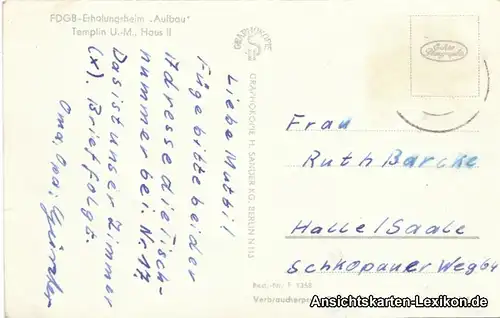 FDGB-Erholungsheim „Aufbau"
Templin U.-M., Haus II
Liebe Mutti!
Füge bitte bei der
Adresse die Tisch-
nummer bei: Nr. 17,
Das ist unser Zimmer
(x). Brief folgt.
Oma, Opa,
GRAPHOKOPIE
GRAPHOKOPIE H. SANDER KG, BERLIN N 113
Echte
Photographie
Frau
Ruth Barcke
Halle/Saale
Schkopauer Weg 64
Best.-Nr. F 1358
Verbraucherpreis
Ansichtskarten-Lexikon.de